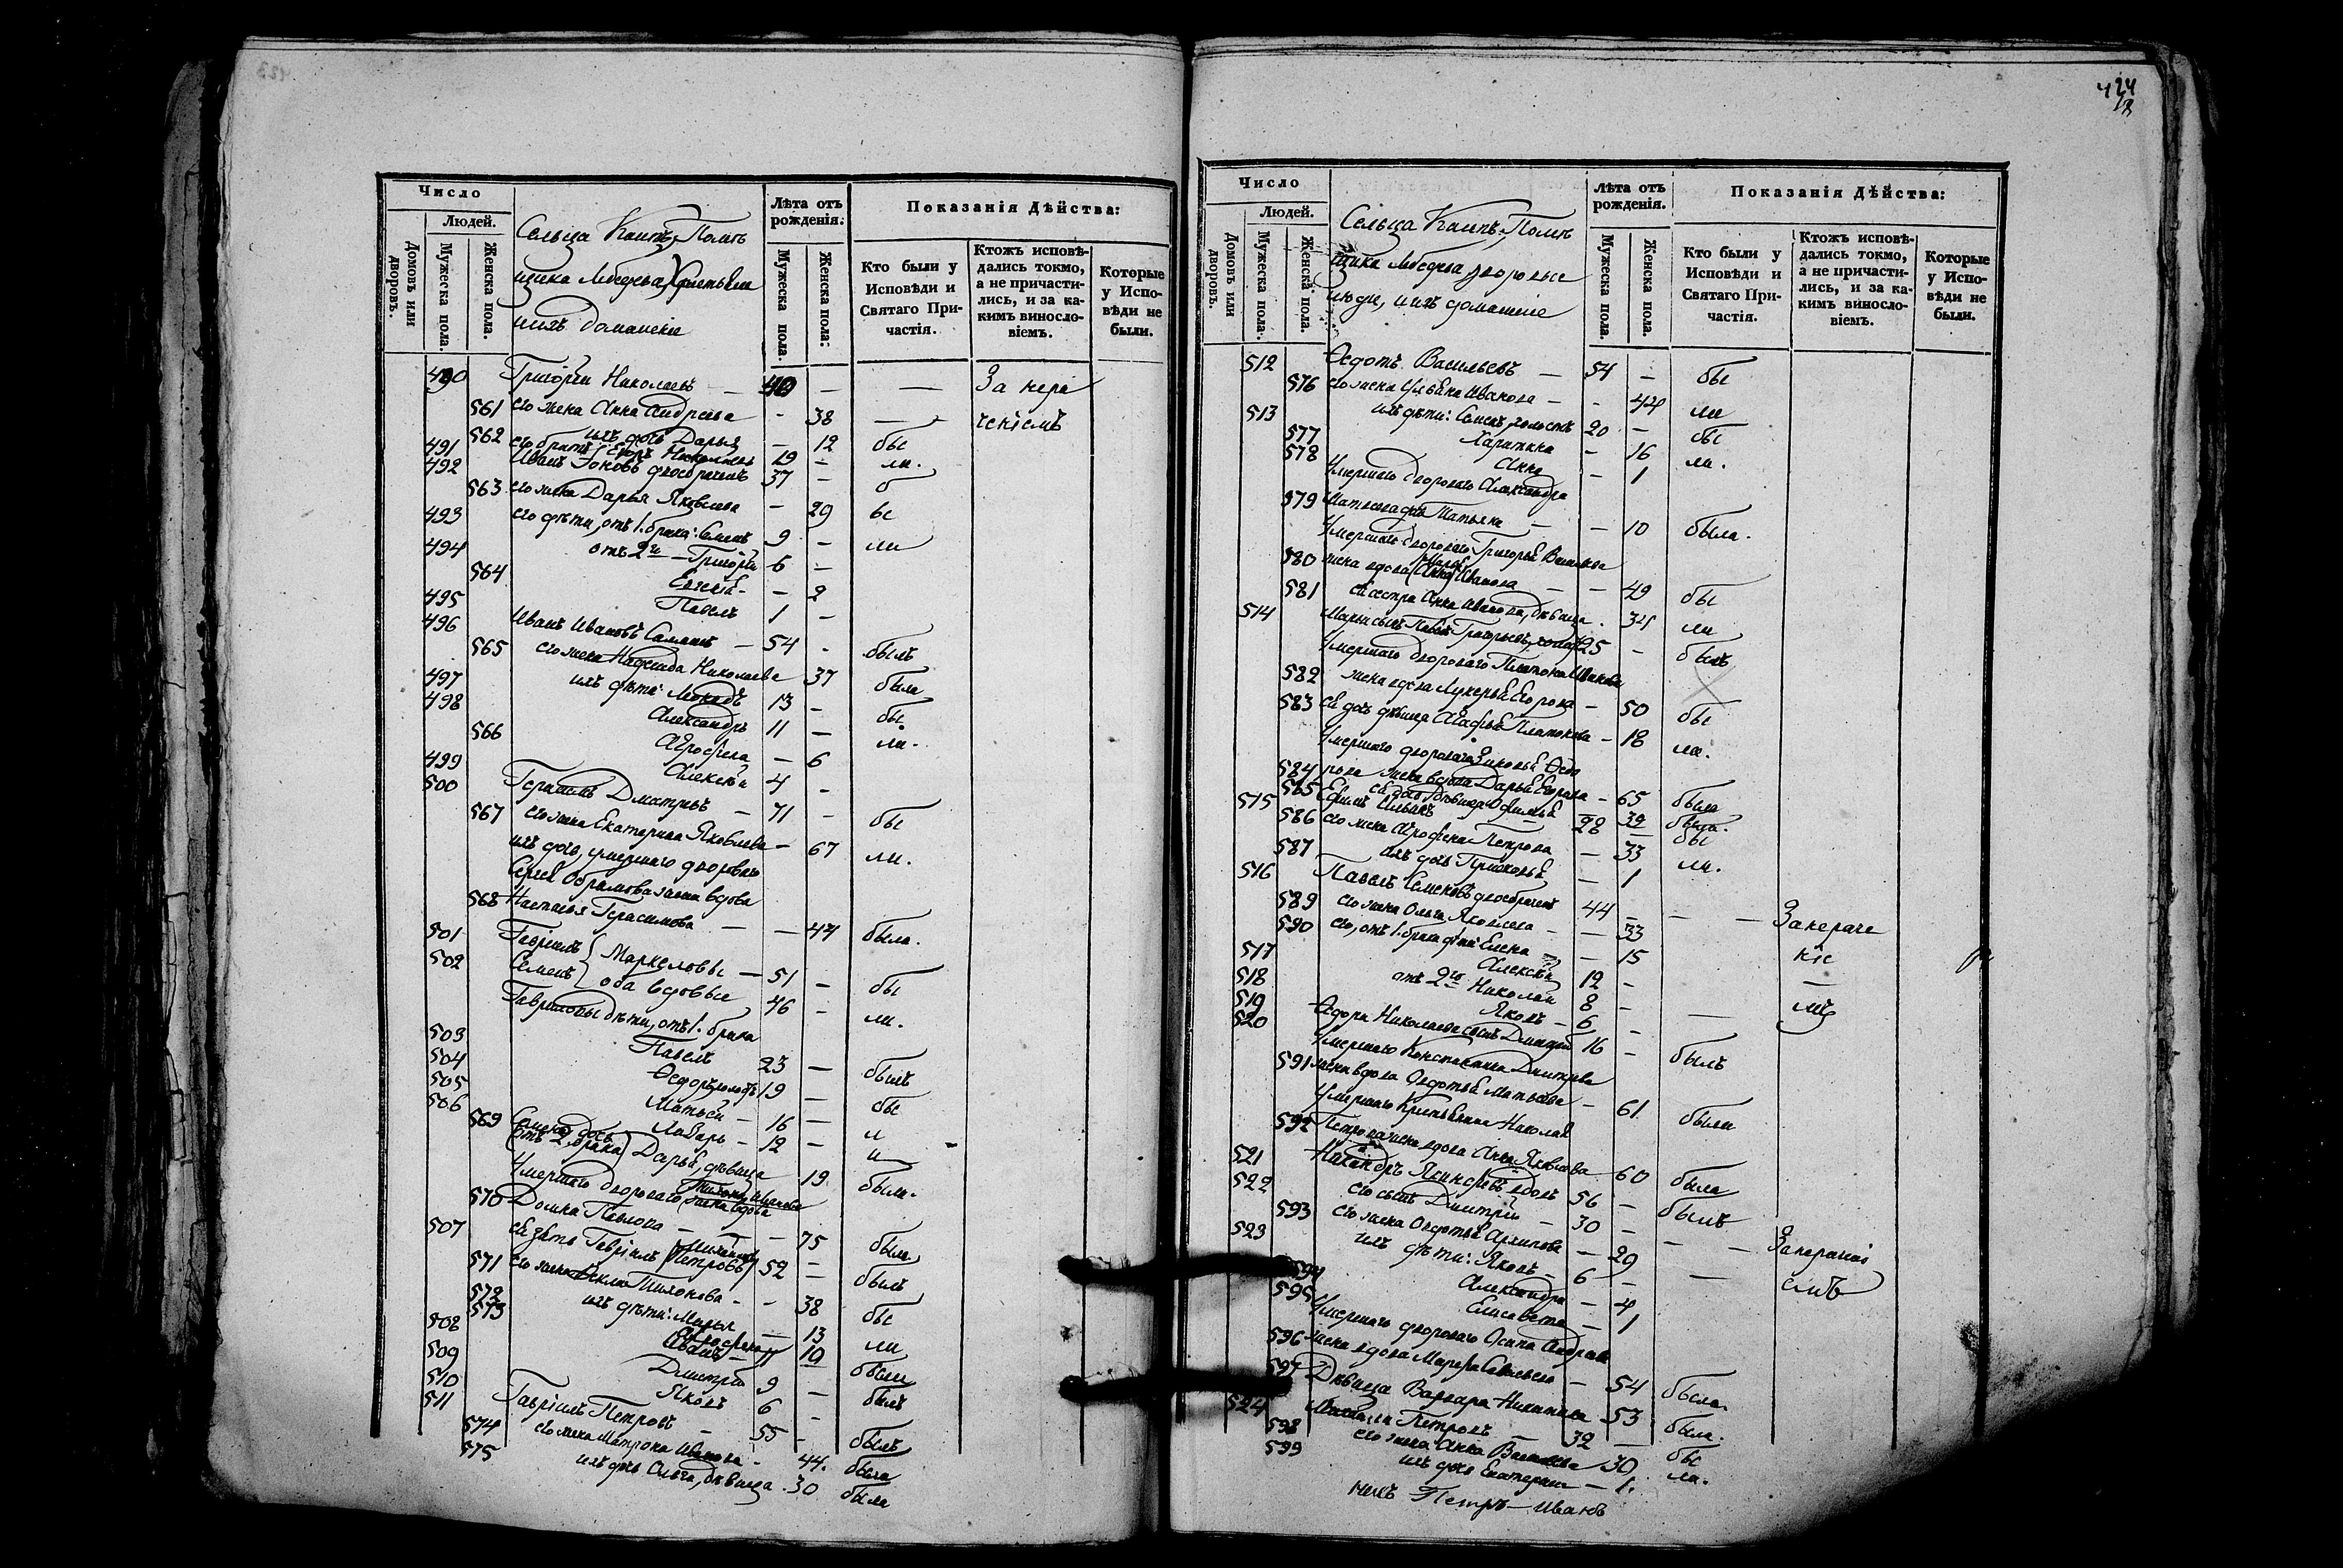 423
Число
Людей.
Домовъ или дворовъ.
Мужеска пола.
Женска пола.
Сельца Помѣ
щика Лебедева Крестьяне
и ихъ домашніе
Лѣта отъ рожденія.
Мужеска пола.
Женска пола.
Показанія Дѣйства:
Кто были у Исповѣди и Святаго Причастія.
Ктожъ исповѣдались токмо, а не причастились, и за какимъ винословіемъ.
Которые у Исповѣди не были.
490 Григорій Николаевъ — 40 — — За нера
561 его жена Анна Андреева - 38 — ченіемъ
562 ихъ дочь Дарья — 12 бы
491 его братъ Николаевъ 19 - ли.
492 Иванъ двоебраченъ 37 -
563 его жена Дарья Яковлева - 29
493 его дѣти, отъ 1. брака: Семенъ 9 - ли
494 отъ 2го — Григорій 6 -
564 - 2
495 Павелъ 1 -
496 Иванъ Ивановъ — 54 - былъ
565 его жена Надежда Николаева 37 была
497 ихъ дѣти: 13 - бы
498 Александръ 11 — ли.
566 Агрофена — 6
499 Алексѣй 4 -
500 Герасимъ Дмитріевъ — 71 - бы
567 его жена Екатерина Яковлева — 67 ли.
ихъ дочь, умершаго двороваго
Сергѣя жена вдова
568 Настасья Герасимова — — 47 была.
501 Гавріилъ Маркеловы — 51 - бы
502 Семенъ оба вдовые 46 - ли.
Гавріиловы дѣти, отъ 1. брака
503 Павелъ 23 — былъ
504 Ѳедоръ, холостъ 19 — бы
505 Матвѣй — 16 — л
506 Лазарь — 12 — и
569 Семена дочь
отъ 2. брака Дарья, дѣвица 19 была.
Умершаго двороваго Тихона Иванова
жена вдова
570 Домна Павлова — — 75 была
507 ея зять Гавріилъ Петровъ 52 — былъ
571 его жена Ѳекла Тихонова - - 38 бы
572 ихъ дѣти: Марья — 13 ли
573 Агрофена 10
508 Иванъ — 11 были
509 Дмитрій 9 — былъ
510 Яковъ 6 -
511 Гавріилъ Петровъ 55 - былъ
574 его жена Матрона Иванова - 44. была
575 ихъ дочь Ольга, дѣвица . 30 была
424
Число
Людей.
Домовъ или дворовъ.
Мужеска пола.
Женска пола.
Сельца Помѣ
щика Лебедева дворовые
люди, и ихъ домашніе
Лѣта отъ рожденія.
Мужеска пола.
Женска пола.
Показанія Дѣйства:
Кто были у Исповѣди и Святаго Причастія.
Ктожъ исповѣдались токмо, а не причастились, и за какимъ винословіемъ.
Которые у Исповѣди не были.
512 Ѳедотъ Васильевъ — 54 - бы
576 его жена Ульяна Иванова — - 44 ли
513 ихъ дѣти: Семенъ, холостъ 20 - бы
577 Харитина - 16 ли.
578 Анна - 1
Умершаго двороваго Александра
579 дочь Татьяна — - 10 была.
Умершаго двороваго Григорья Васильева
580 жена вдова Марья Иванова — — 49 бы
581 ея сестра Анна Иванова, дѣвица . 34 ли
514 Марьи сынъ Павелъ Григорьевъ, холостъ 25 - былъ
Умершаго двороваго Платона Иванова
582 жена вдова Лукерья Егорова - 50 бы
583 ея дочь дѣвица Агафья Платонова - 18 ли.
Умершаго двороваго Зиновья Ѳедо
584 рова жена вдова Дарья Егорова - 65 была
585 ея дочь дѣвица 39 была.
515 Ефимъ 28 — бы
586 его жена Агрофена Петрова — 33 ли.
587 ихъ дочь Прасковья — 1
516 Павелъ Семеновъ двоебраченъ 44 - — — За нераче
589 его жена Ольга Яковлева - — 33 ніе
590 его, отъ 1. брака дѣти: Елена — 15
517 Алексѣй 12 - —
518 отъ 2го Николай 8 - мъ
519 Яковъ - 6 -
520 Ѳедора Николаева сынъ Дмитрій 16 - былъ
Умершаго Константина Дмитріева
591 жена вдова Авдотья Матвѣева - 61. была
Умершаго Крестьянина Николая
592 Петрова жена вдова Анна Яковлева 60 была
521 вдовъ 56 — былъ
522 его сынъ Дмитрій — 30 -
593 его жена Авдотья Архипова — 29 — — За нерачені
523 ихъ дѣти: Яковъ - 6 — — емъ
594 Александра — 4
595 Елисавета — 1
Умершаго двороваго Осипа Андреева
596 жена вдова Марфа - 54 была
597 Дѣвица Варвара Никитина 53 была.
524 Петровъ — 32 — бы
598 его жена Анна Васильева 30 ли.
599 ихъ дочь Екатерина - 1.
Петръ — Ивановъ